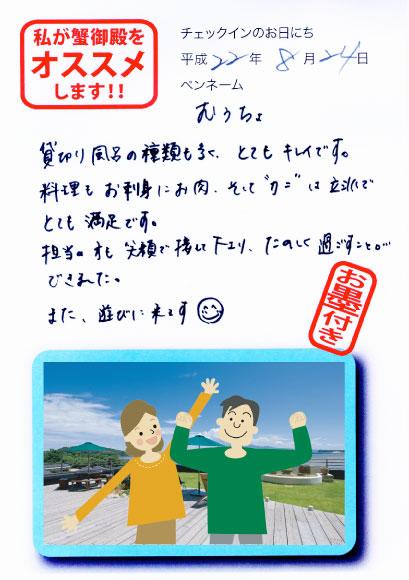 私が蟹御殿を
オススメ
します!!
チェックインのお日にち
平成22年8月24日
ペンネーム
むぅちょ
貸切り風呂の種類も多く、とてもキレイです。
料理もお刺身にお肉、そして"カニ"は立派で
とても満足です。
担当の方も笑顔で接して下さり、たのしく過ごすことが
できました。
また、遊びに来ます
お墨付き